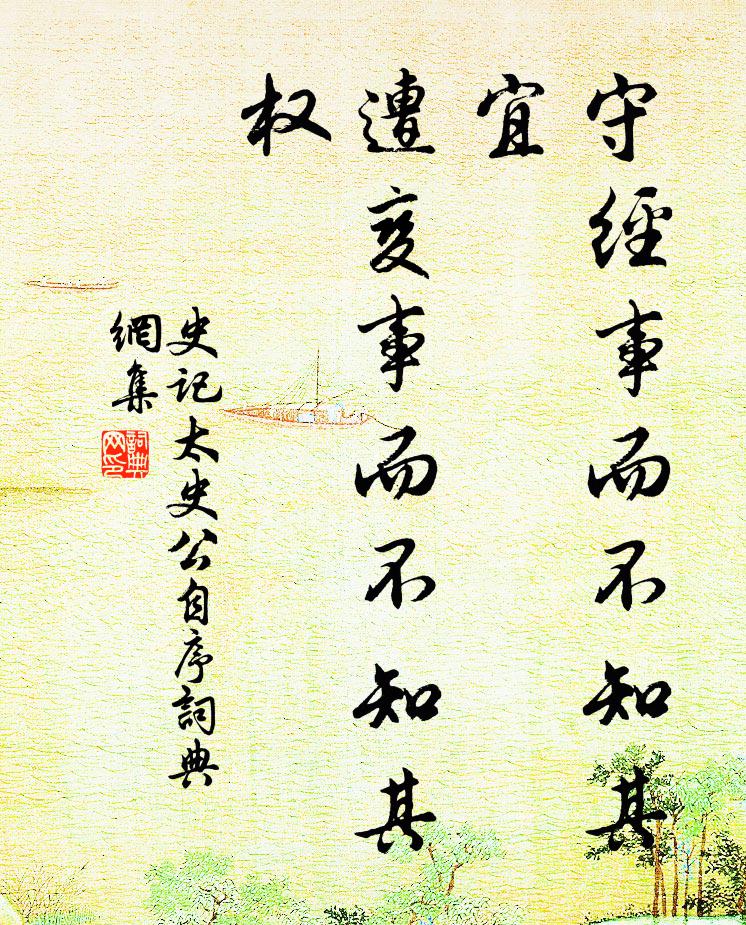 守經事而不知其
宜
遭変事而不知其
权
史记太史公自序詞典
網集
詞典
网印